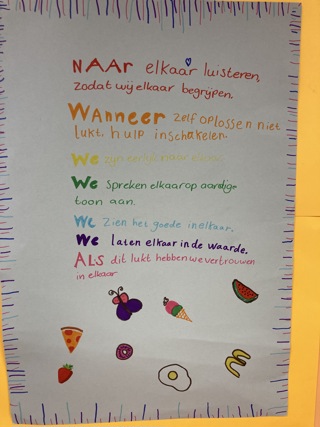 NAAr elkaar luisteren,
zodat wij elkaar begrijpen.
WAnneer zelf oplossen niet
lukt, hulp inschakelen.
We zijn eerlijk naar
We spreken elkaar op aardige
toon aan.
We zien het goede in elkaar.
We laten elkaar in de waarde.
ALS dit lukt hebben we vertrouwen
in elkaar